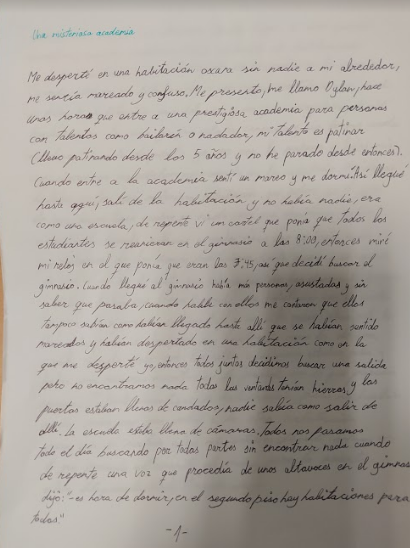 Una misteriosa academia
Me desperté en una habitación oscura sin nadie a mi alrededor,
me sentía mareado y confuso. Me presento, me llamo Dylan, hace
unas horas que entre a una prestigiosa academia para personas
con talentos como bailarín o nadador, mi talento es patinar
(llevo patinando desde los 5 años y no he parado desde entonces).
Cuando entre a la academia sentí un mareo y me dormí. Así llegué
hasta aquí, salí de la habitación y no había nadie, era
como una escuela, de repente vi un cartel que ponía que todos los
estudiantes se reunieran en el gimnasio a las 8:00, entonces miré
mi reloj en el que ponía que eran las 7:45, así que decidí buscar el
gimnasio. Cuando llegué al gimnasio había más personas, asustadas y sin
saber que pasaba, cuando hablé con ellos me contaron que ellos
tampoco sabían como habían llegado hasta allí que se habían sentido
mareados y habían despertado en una habitación como en la
que me desperté yo, entonces todos juntos decidimos buscar una salida
pero no encontramos nada todas las ventanas tenían hierros y las
puertas estaban llenas de candados, nadie sabía como salir de
allí. La escuela estaba llena de cámaras. Todos nos pasamos
todo el día buscando por todas partes sin encontrar nada cuando
de repente una voz que procedía de unos altavoces en el gimnas
dijo: "-es hora de dormir, en el segundo piso hay habitaciones para
todos."
-1-